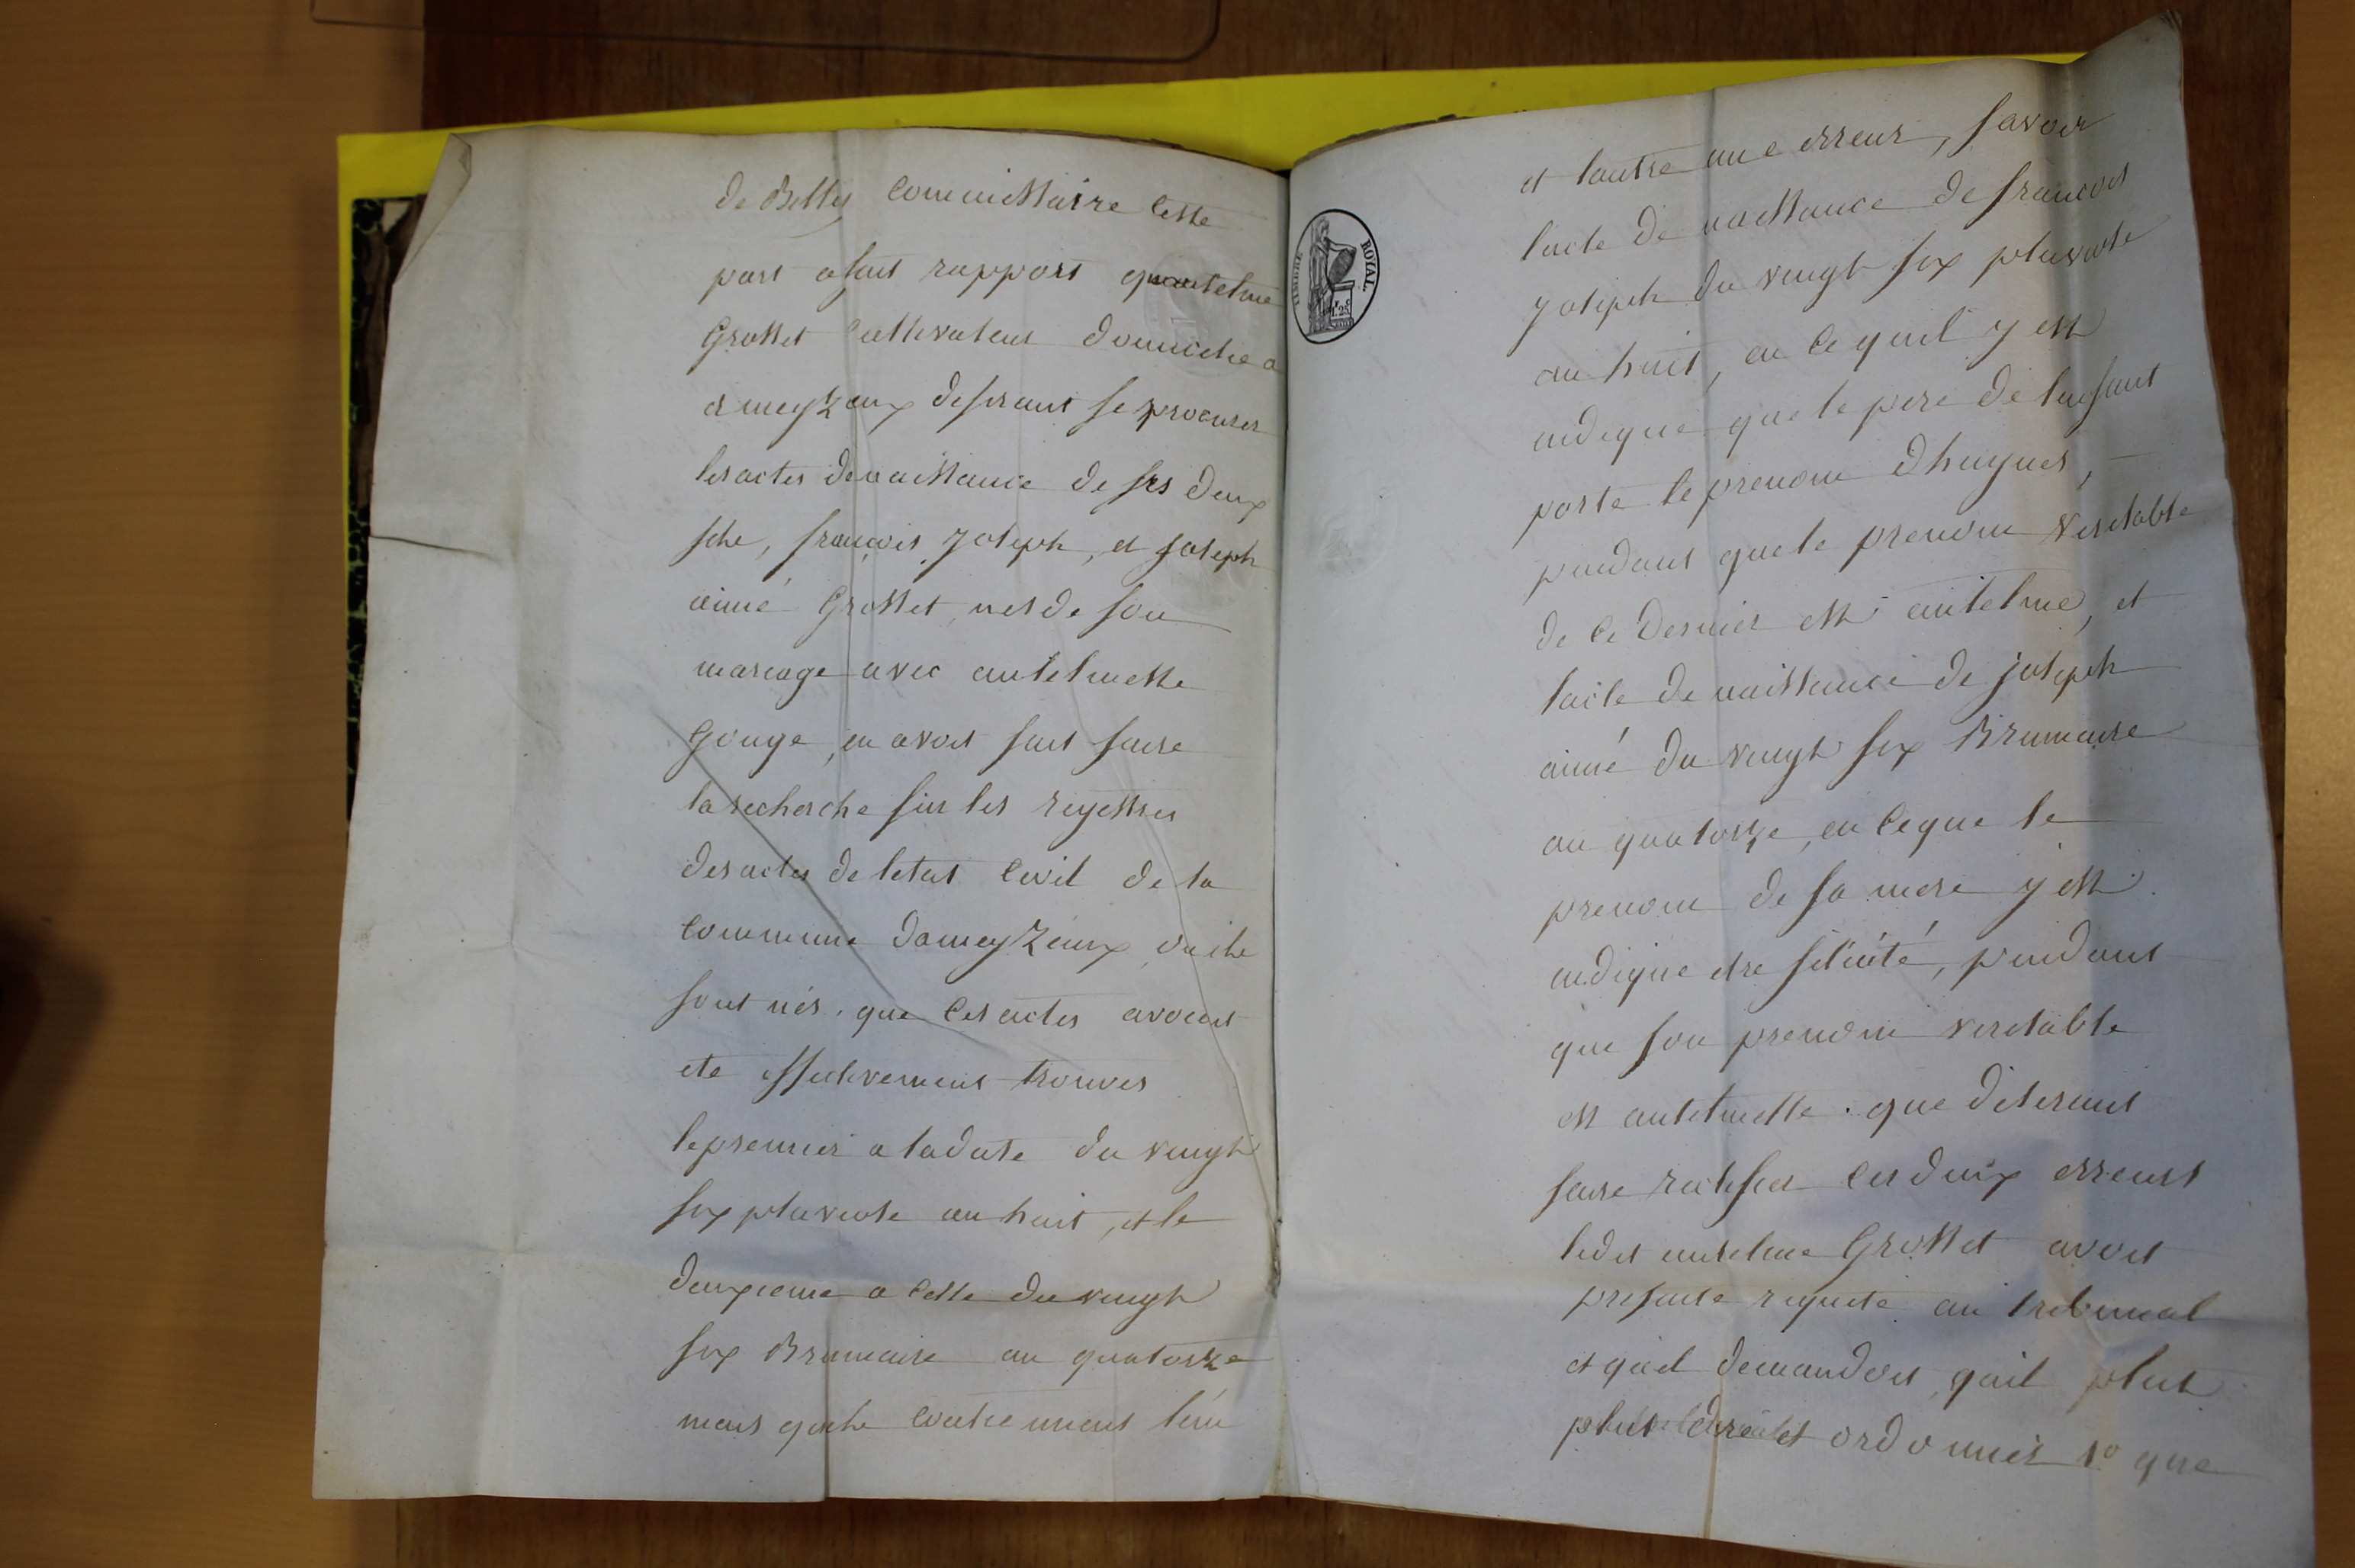 de Belley commissaire cette
part a fait rapport quantelme
Grosset cultivateur domicilie a
ameyzeux desirant se procurer
les actes de naissance de ses deux
fils, françois Joseph, et Joseph
aimé Grosset, nes de son
mariage avec antelmette
Gouge, en avoit fait faire
la recherche sur les registres
des actes de letat civil de la
commune dameyzeux, ou ils
sont nés. que ces actes avoient
ete effectivement trouves
le premier a la date du vingt
six pluviose an huit, et le
deuxieme a celle du vingt
six Brumaire an quatorze
mais quils contiennent lun
et lautre une erreur, savoir
lacte de naissance de francois
Joseph du vingt six pluviose
an huit, en ce quil y est
indique que le pere de lenfant
porte le prenom dhugues,
pendant que le prenom veritable
de ce dernier est antelme, et
lacte de naissance de joseph
aimé du vingt six Brumaire
an quatorze, en ce que le
prenom de sa mere y est
indique etre félicité, pendant
que son prenom veritable
est antelmette. que desirant
faire rectifier ces deux erreurs
ledit antelme Grosset avoit
presente requete au tribunal
et quil demandoit quil plut
plut ordonner 1° que
TIMBRE ROYAL
1f. 25c